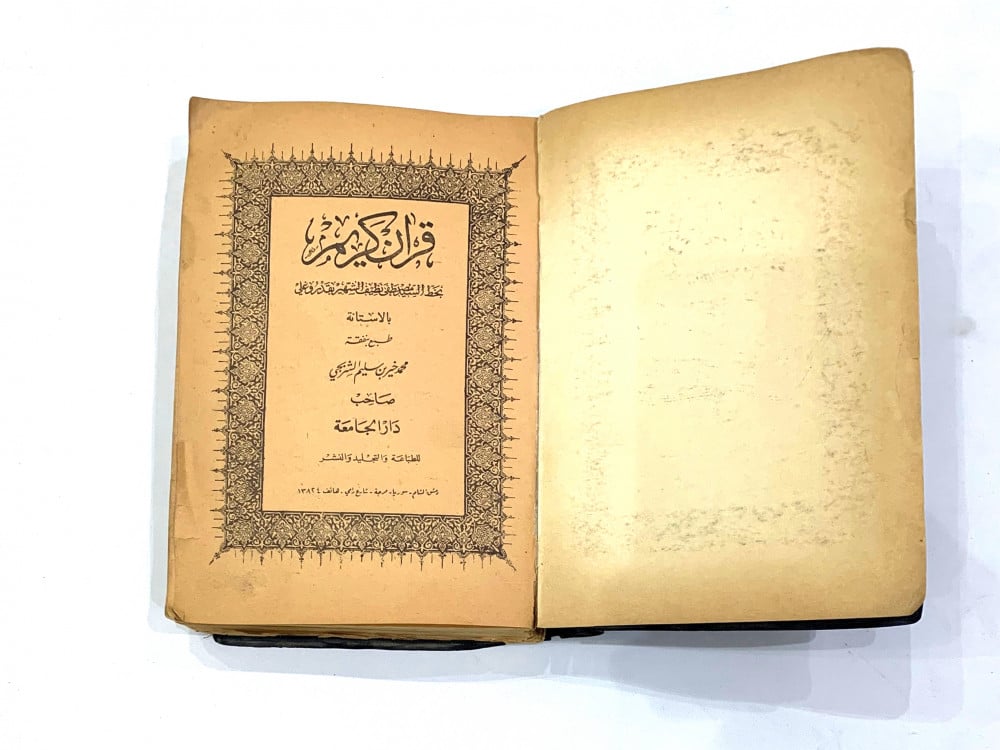 قرآن كريم
بخط السيد مصطفى نظيف الشهير بقدروغلى
بالاستانة
طبع بنفقة
محمد خير بن سليم الشربجي
صاحب
دار الجامعة
للطباعة والتجليد والنشر
دمشق الشام - سوريا - مرجة - شارع رامي - هاتف ١٣٨٢٤